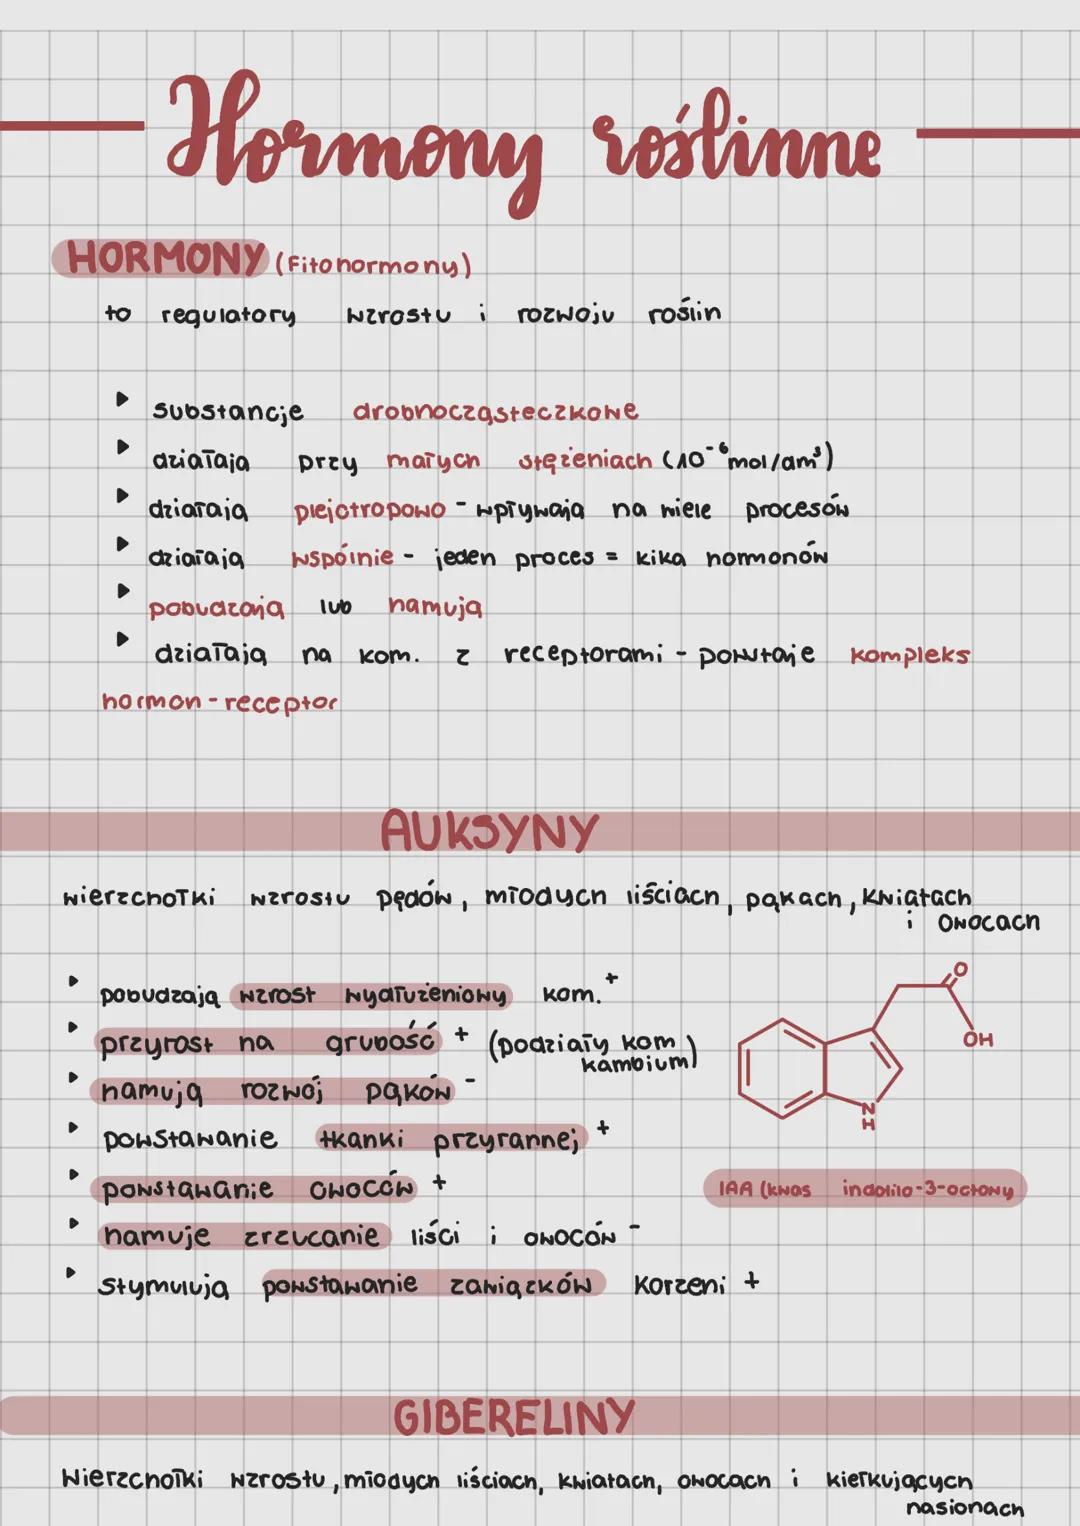 Hormony roślinne
HORMONY (Fitohormony)
to regulatory wzrostu i rozwoju roślin
▸ substancje drobnocząsteczkowe
▸ działają przy małych stężeniach (10⁻⁶ mol/dm³)
▸ działają plejotropowo - wpływają na wiele procesów
▸ działają wspólnie - jeden proces = kika hormonów
▸ pobudzają lub hamują
▸ działają na kom. z receptorami - powstaje kompleks
hormon - receptor
AUKSYNY
wierzchołki wzrostu pędów, młodych liściach, pąkach, kwiatach
i owocach
▸ pobudzają wzrost wydłużeniowy kom. +
▸ przyrost na grubość + (podziały kom
kambium)
▸ hamują rozwój pąków -
▸ powstawanie tkanki przyrannej +
▸ powstawanie owoców +
▸ hamuje zrzucanie liści i owoców -
▸ stymulują powstawanie zawiązków korzeni +
O
OH
N
H
IAA (kwas indolilo-3-octowy
GIBERELINY
Wierzchołki wzrostu, młodych liściach, kwiatach, owocach i kiełkujących
nasionach